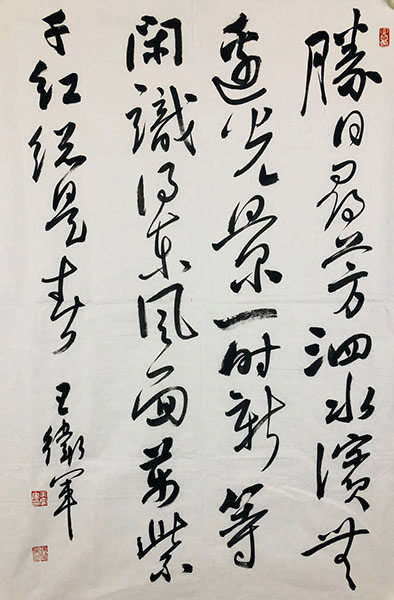 勝日尋芳泗水濱無
邊光景一時新等
閑識得東風面萬紫
千紅總是春
王衛軍